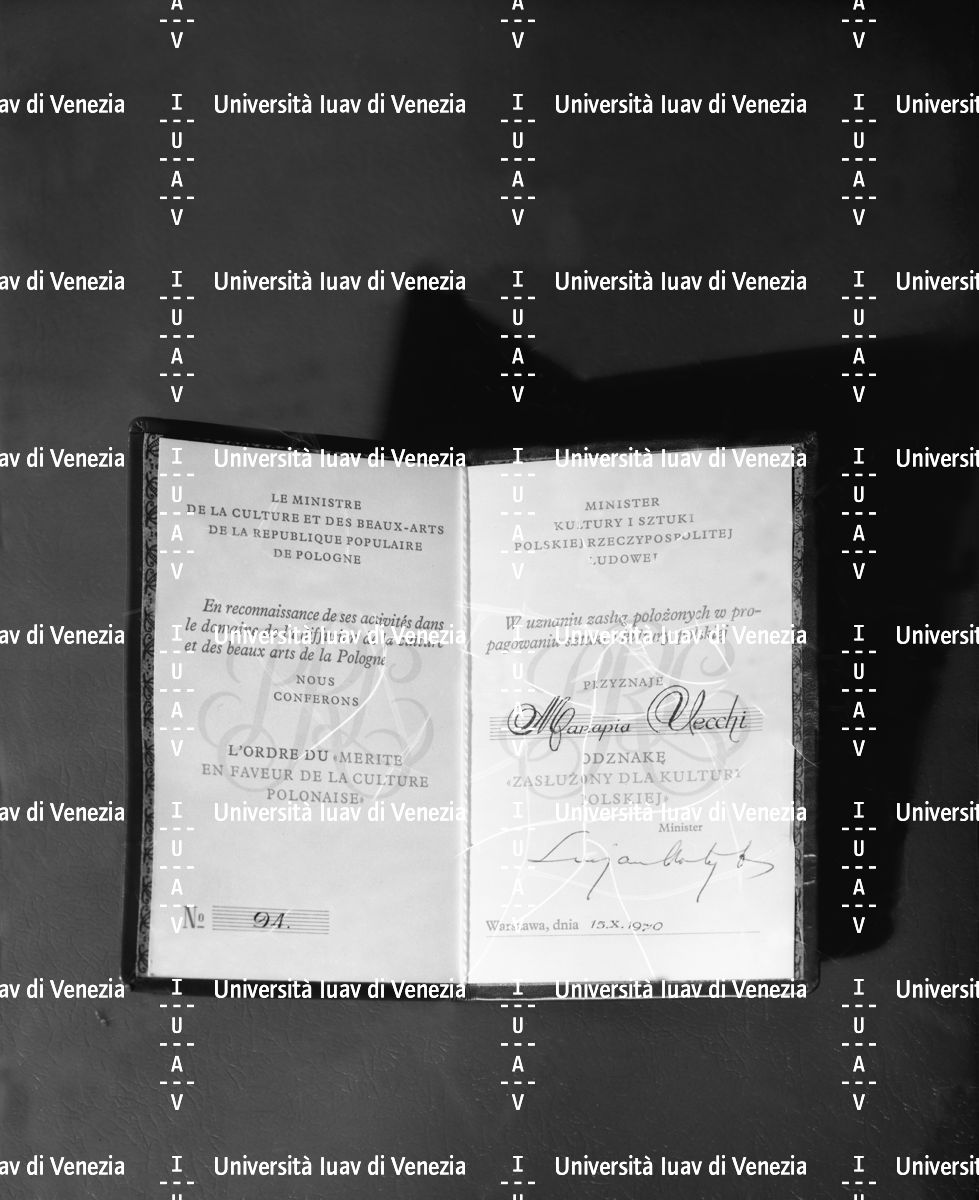 LE MINISTRE
DE LA CULTURE ET DES BEAUX-ARTS
DE LA REPUBLIQUE POPULAIRE
DE POLOGNE
En reconnaissance de ses activités dans
le domaine de la diffusion de la culture
et des beaux arts de la Pologne
NOUS
CONFERONS
L'ORDRE DU «MERITE
EN FAVEUR DE LA CULTURE
POLONAISE»
No 94.
MINISTER
KULTURY I SZTUKI
POLSKIEJ RZECZYPOSPOLITEJ
LUDOWEJ
W uznaniu zasług położonych w pro-
pagowaniu
PRZYZNAJE
Mariapia Vecchi
ODZNAKĘ
«ZASŁUŻONY DLA KULTURY
POLSKIEJ»
Minister
Warszawa, dnia 15.X.1970
Università Iuav di Venezia
I
U
A
V